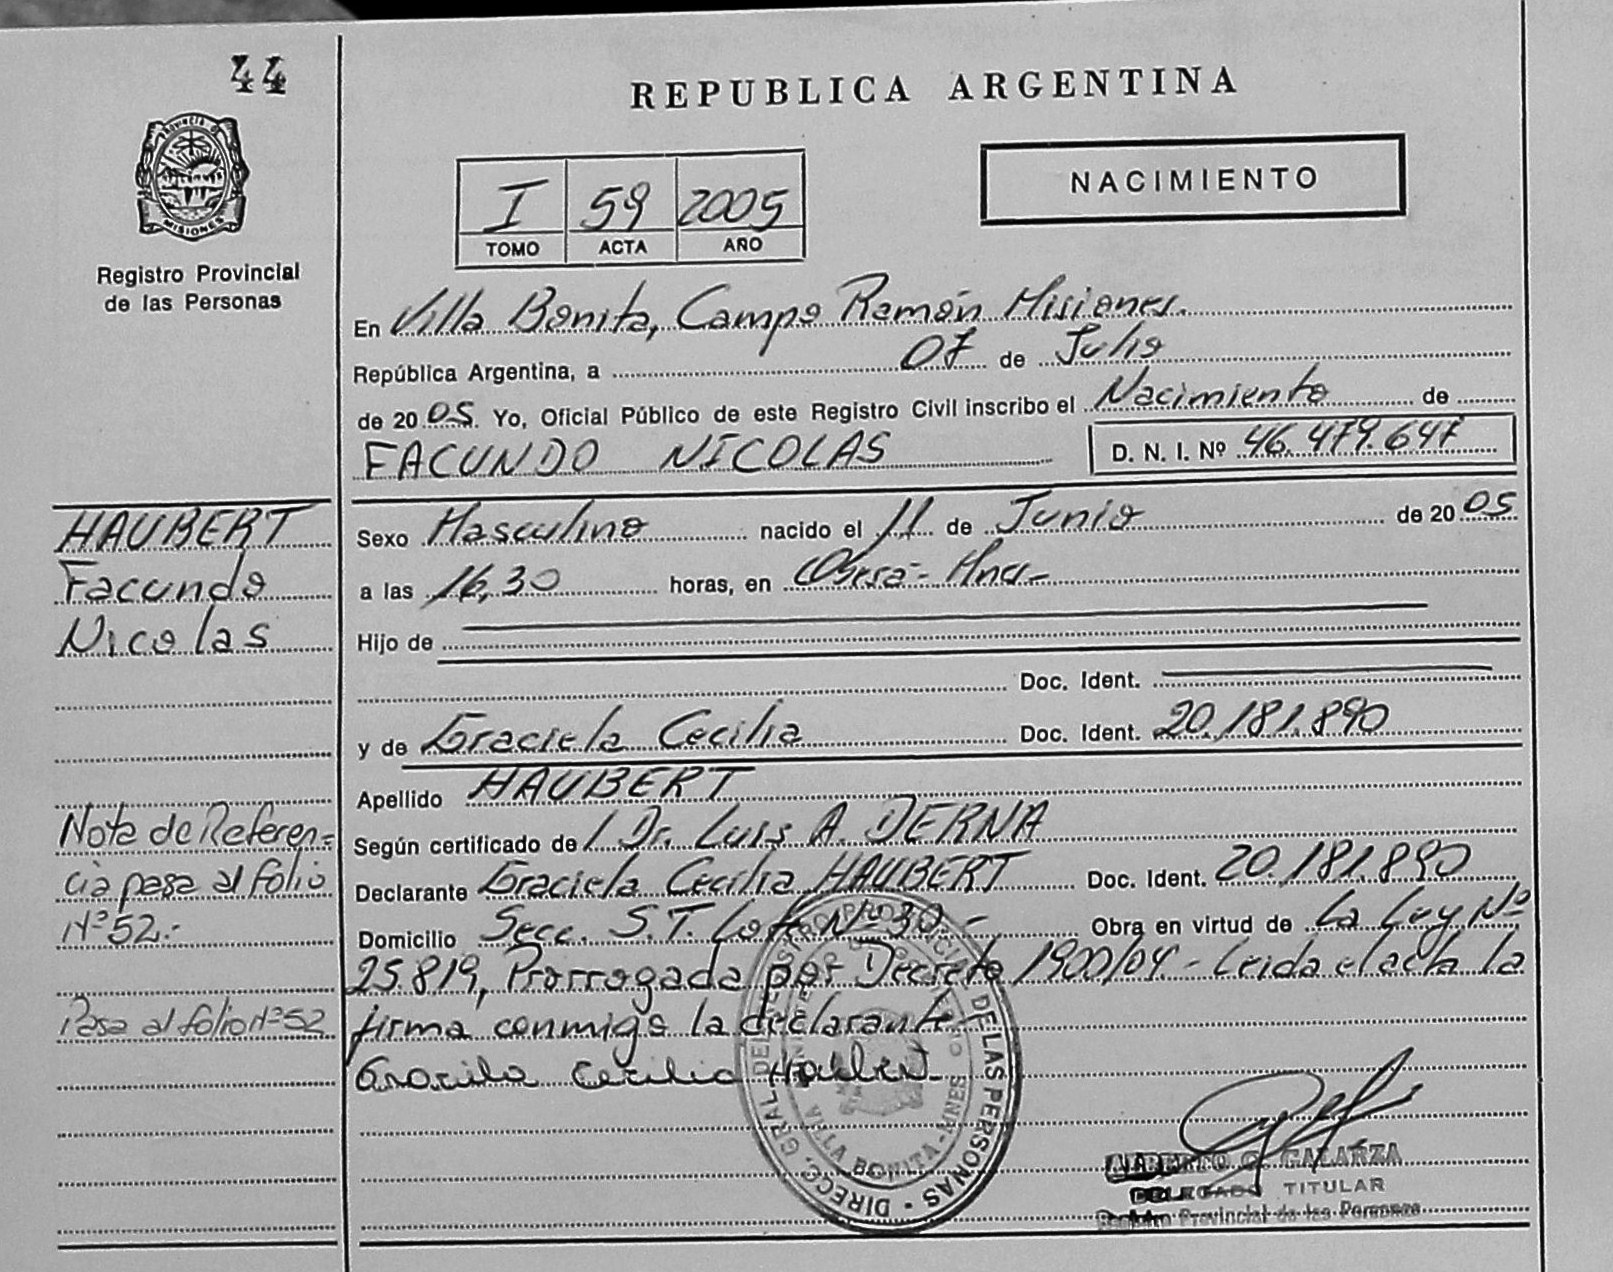 44
PROVINCIA DE
MISIONES
Registro Provincial
de las Personas
REPUBLICA ARGENTINA
I 59 2005
TOMO ACTA AÑO
NACIMIENTO
En Villa Bonita, Campo Ramón Misiones.
República Argentina, a 07 de Julio
de 2005. Yo, Oficial Público de este Registro Civil inscribo el Nacimiento de
FACUNDO NICOLAS D. N. I. Nº 46.479.647
HAUBERT
Facundo
Nicolas
Sexo Masculino nacido el 11 de Junio de 2005
a las 16,30 horas, en Oberá-
Hijo de
Doc. Ident.
y de Graciela Cecilia Doc. Ident. 20.181.890
Apellido HAUBERT
Según certificado de Dr. Luis A. DERNA
Declarante Graciela Cecilia HAUBERT Doc. Ident. 20.181.890
Domicilio Secc. S.T. Lote Nº 30.- Obra en virtud de La Ley Nº
25.819, Prorrogada por Decreto 1900/04.- Leida el acta la
firma conmigo la declarante
Graciela Cecilia Haubert
Nota de Referen-
cia pasa al folio
Nº 52.-
Pasa al folio Nº 52
DIRECC. GRAL DEL REGISTRO PROVINCIAL DE LAS PERSONAS
VILLA BONITA - MNES
ALBERTO C. GALARZA
DELEGADO TITULAR
Registro Provincial de las Personas